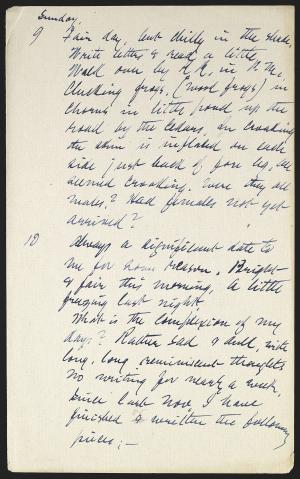 Sunday,
9 Fair day, but chilly in the shade.
Write letters & read a little
Walk over by R.R. in P.M.
Clucking frogs, (wood frogs) in
chorus in little pond up the
road by the cedars, In croaking
the skin is inflated on each
side just back of fore leg, all
seemed croaking. Were they all
males? Had females not yet
arrived?
10 Always a significent date to
me for some reason. Bright
& fair this morning, a little
freezing last night,
What is the complexion of my
days? Rather sad & dull, with
long, long reminiscent thoughts
No writing for nearly a week,
Since last Nov, I have
finished & written the following
pieces;—